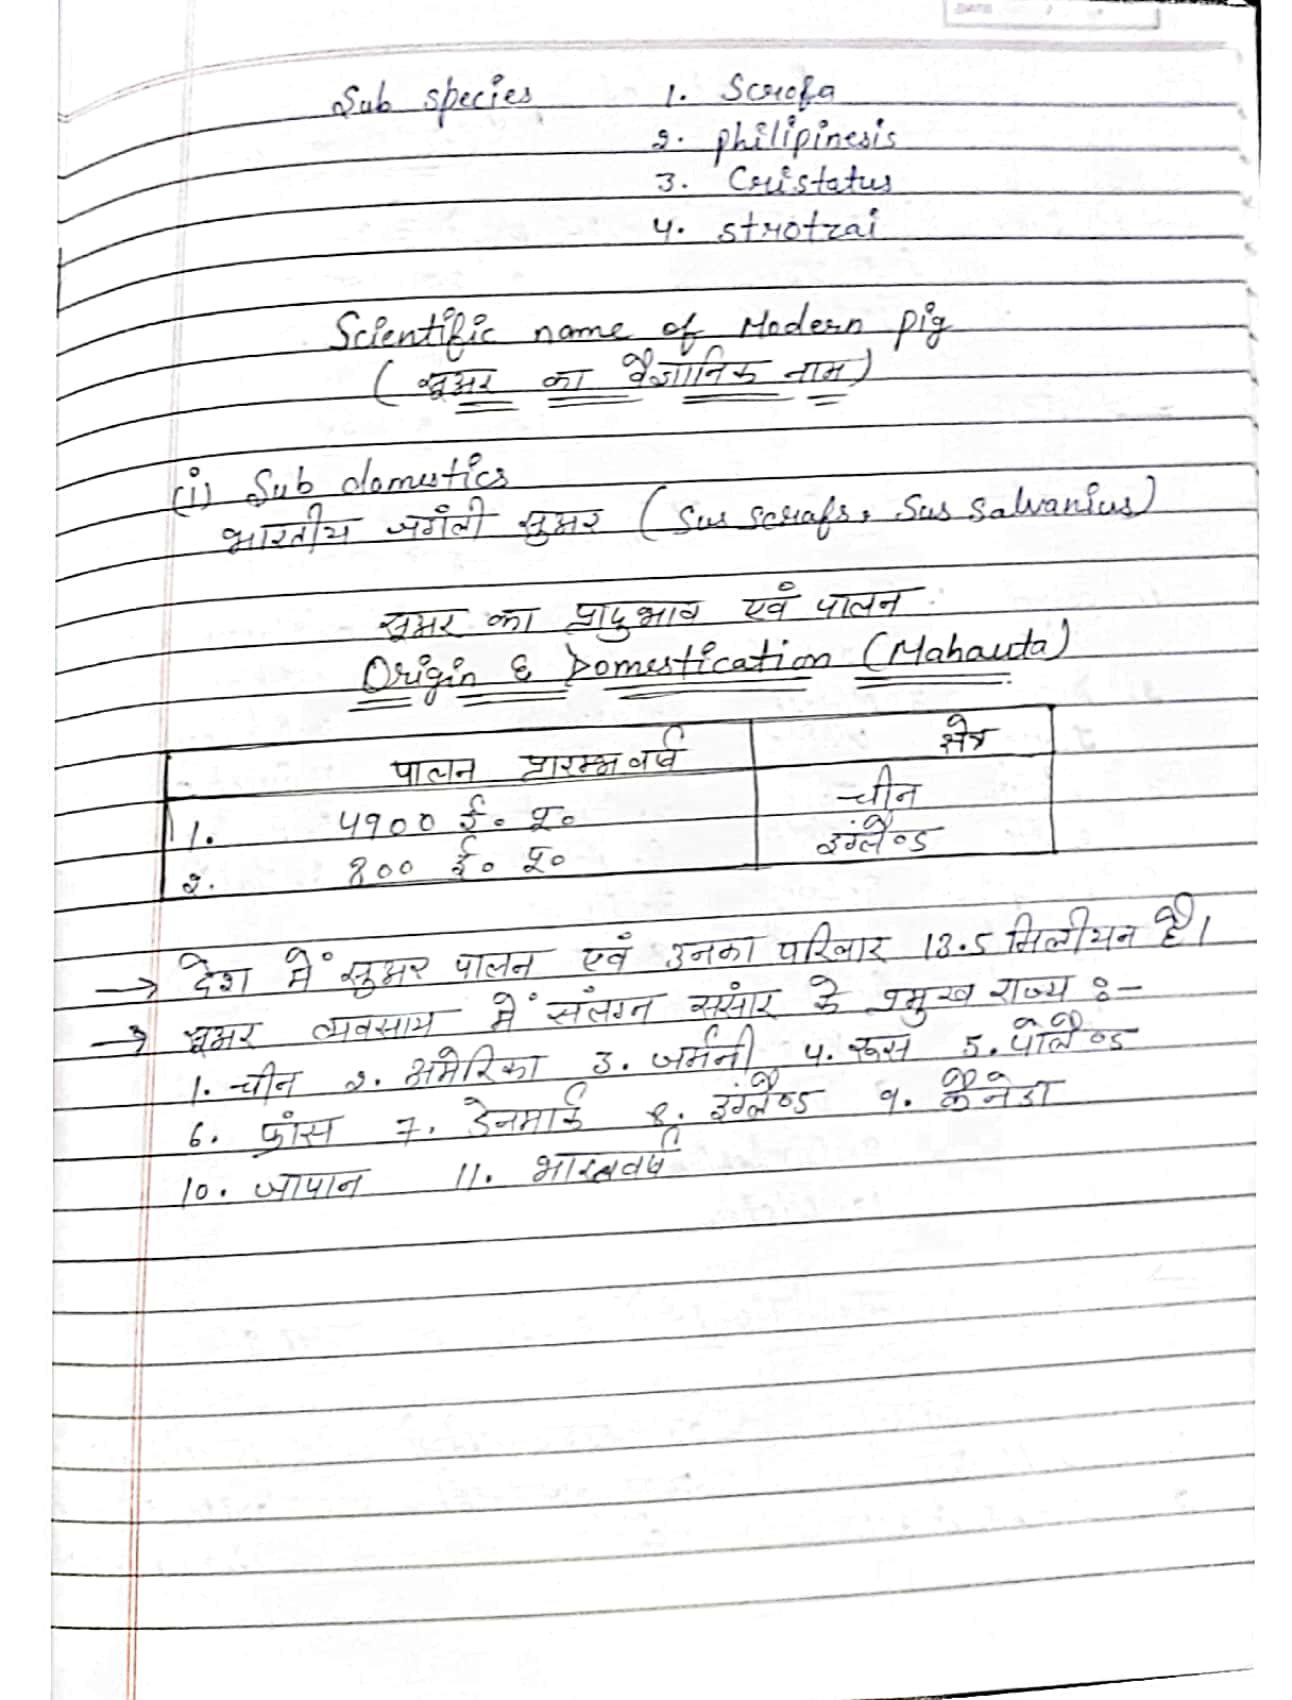 DATE
Sub species 1. Scrofa
2. philipinesis
3. Cristatus
4. strotzai
Scientific name of Modern pig
(सूअर का वैज्ञानिक नाम)
(i) Sub domestics
भारतीय जगंली सुअर (Sus scrafs, Sus salvanius)
सूअर का प्रादुभाव एवं पालन
Origin & Domestication (Mahauta)
पालन प्रारम्भ वर्ष क्षेत्र
1. 4900 ई० पू० चीन
2. 800 ई० पू० इंग्लैण्ड
→ देश में सुअर पालन एवं उनका परिवार 13.5 मिलीयन है।
→ सूअर व्यवसाय में संलग्न संसार के प्रमुख राज्य :-
1. चीन 2. अमेरिका 3. जर्मनी 4. रूस 5. पोलैण्ड
6. फ्रांस 7. डेनमार्क 8. इंग्लैण्ड 9. कैनेडा
10. जापान 11. भारतवर्ष